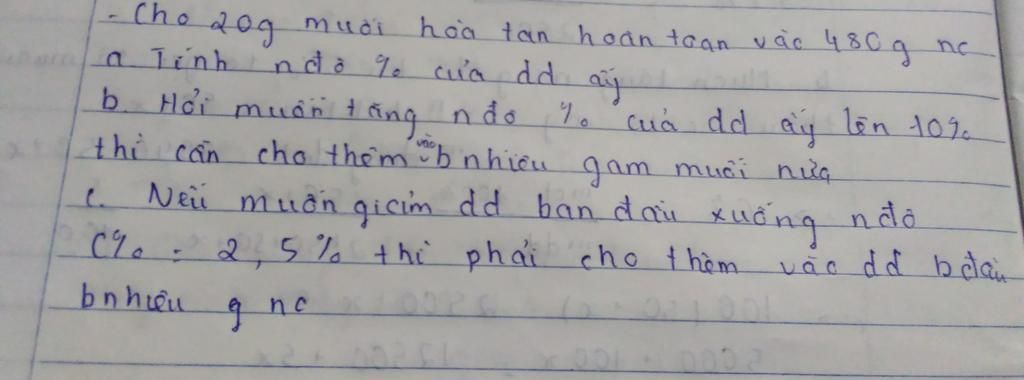 - Cho 20g muối hòa tan hoàn toàn vào 480g nc
a Tính nđộ % của dd ấy
b. Hỏi muốn tăng n độ % của dd ấy lên 10%
thì cần cho thêm vào b nhiêu gam muối nữa
c. Nếu muốn giảm dd ban đầu xuống nđộ
C% = 2,5% thì phải cho thêm vào dd bđầu
bnhiêu g nc